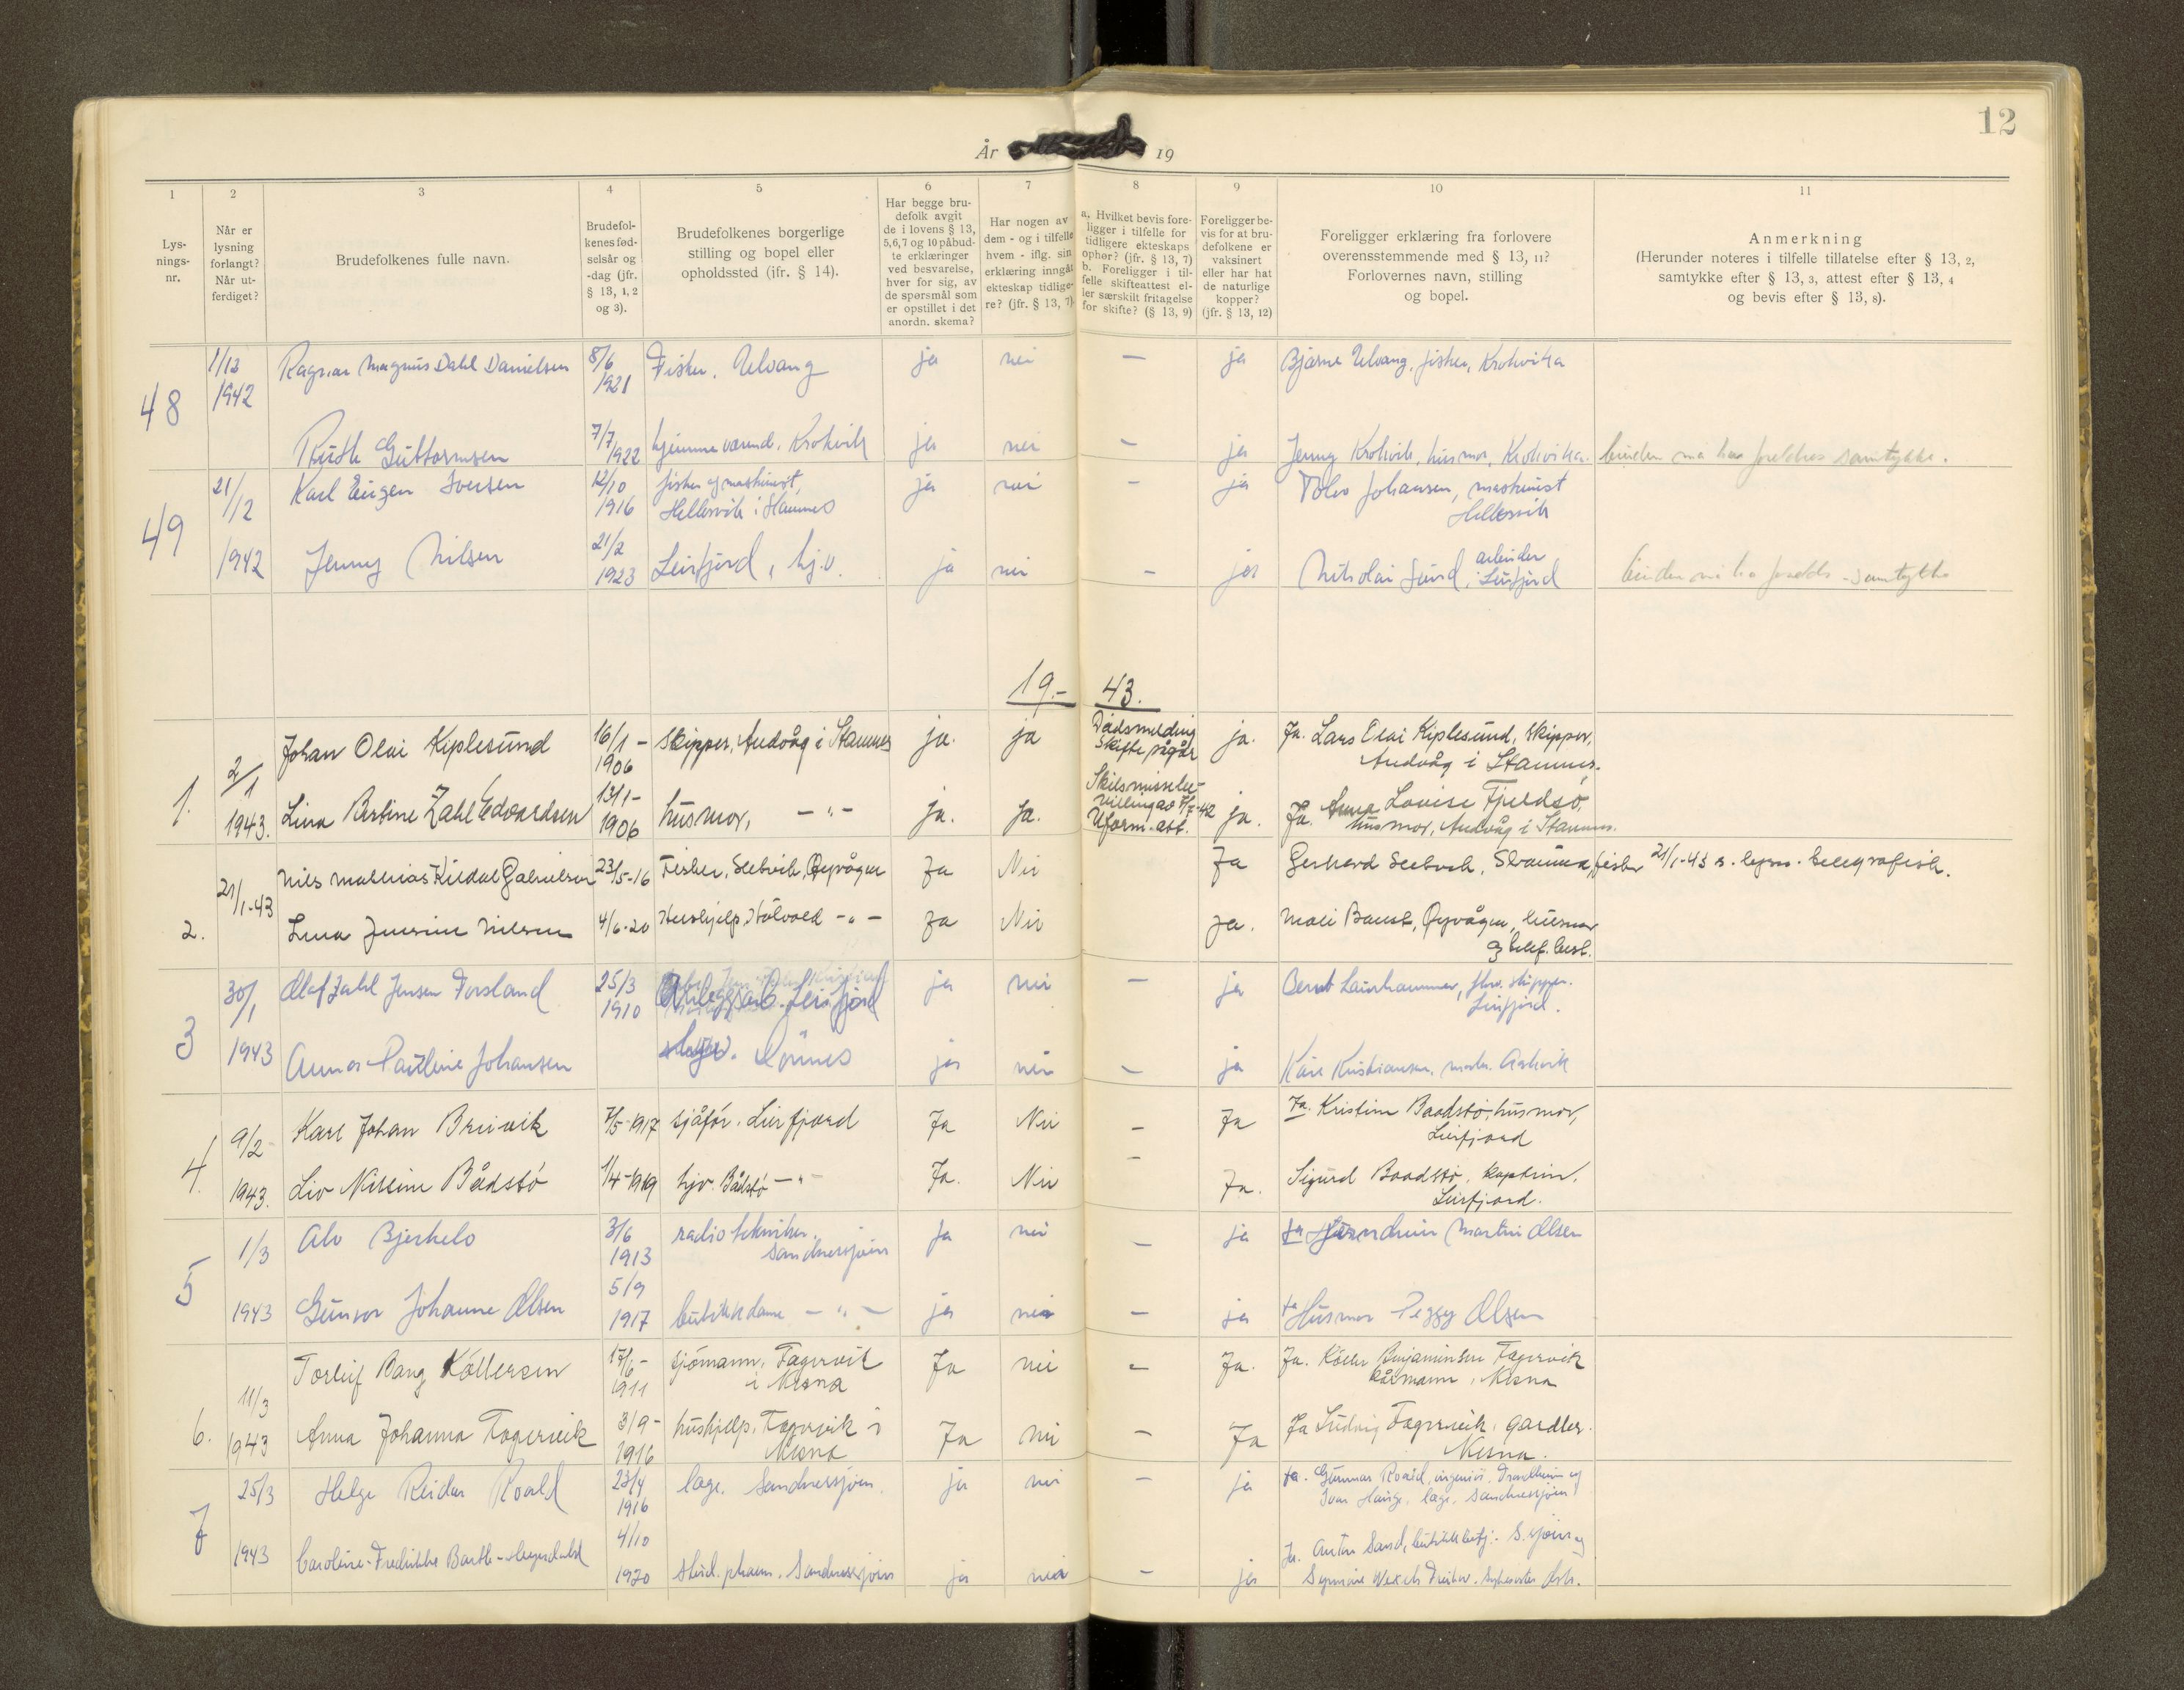 12
År 19
1 2 3 4 5 6 7 8 9 10 11
Lys-
nings-
nr.
Når er
lysning
forlangt?
Når ut-
ferdiget?
Brudefolkenes fulle navn.
Brudefol-
kenes fød-
selsår og
-dag (jfr.
§ 13, 1, 2
og 3).
Brudefolkenes borgerlige
stilling og bopel eller
opholdssted (ifr. § 14).
Har begge bru-
defolk avgit
de i lovens § 13,
5,6,7 og 10 påbud-
te erklæringer
ved besvarelse,
hver for sig, av
de spørsmål som
er opstillet i det
anordn. skema?
Har nogen av
dem - og i tilfelle
hvem - iflg. sin
erklæring inngåt
ekteskap tidlige-
re? (jfr. § 13, 7)
a. Hvilket bevis fore-
ligger i tilfelle for
tidligere ekteskaps
ophør? (jfr. § 13, 7)
b. Foreligger i til-
felle skifteattest el-
ler særskilt fritagelse
for skifte? (§ 13, 9)
Foreligger be-
vis for at bru-
defolkene er
vaksinert
eller har hat
de naturlige
kopper?
(jfr. § 13, 12)
Foreligger erklæring fra forlovere
overensstemmende med § 13, 11?
Forlovernes navn, stilling
og bopel.
Anmerkning
(Herunder noteres i tilfelle tillatelse efter § 13, 2,
samtykke efter § 13, 3, attest efter § 13, 4
og bevis efter § 13, 8).
48 1/12 1942 Ragnar Magnus Dahl Danielsen 8/6 1921 Fisker, Ulvang ja nei — ja Bjarne Ulvang, fisker, Krokvika
Ruth Guttormsen 7/7 1922 hjemmeværend. Krokvik ja nei — ja Jenny Krokvik, husmor, Krokvika. bruden må ha foreldres samtykke.
49 21/12 1942 Karl Eugen Iversen 12/10 1916 fisker og maskinist, ja nei — ja Johansen, maskinist
Hellesvik i Stamnes Hellesvik
Jenny Nilsen 21/2 1923 Leirfjord, hj.v. ja nei — ja Nikolai Sund, arbeider
Leirfjord bruden må ha samtykke
19.- 43.
1. 2/1 1943. Johan Olai Kiplesund 16/1 - 1906 Skipper, Andvåg i Stamnes ja. ja Dødsmelding ja. Ja. Lars Olai Kiplesund, Skipper,
Skifte pågår Andvåg i Stamnes.
Lina Bertine Zahl Edvardsen 13/1 - 1906 husmor, — " — ja. ja. Skilsmissebe-
villing av 7/7-42 ja. Ja. Anna Lovise Fjeldsø,
Uform. att. husmor, Andvåg i Stamnes.
2. 21/1-43 Nils Mathias Kildal Gabrielsen 23/5-16 Fisker, Seetvik, Øyvågen Ja Nei Ja Gerhard fisker 21/1-43 telegrafisk.
Lina Jensine Nilsen 4/6-20 Hushjelp, — " — Ja Nei Ja. Øyvågen, husmor
3 30/1 1943 Olaf Zahl Jensen Forsland 25/3 1910 Leirfjord ja nei — ja Bernt skipper.
Leirfjord.
Anna Pauline Johansen ja nei — ja Kåre Kristiansen,
4. 9/2 1943. Karl Johan Breivik 7/5-1917 sjåfør. Leirfjord Ja Nei — Ja Ja. Kristine Baadstø, husmor,
Leirfjord
Liv Nilsine Bådstø 1/4-1919 hjv. Bådstø — " — Ja. Nei — Ja. Sigurd Baadstø, kaptein,
Leirfjord.
5 1/3 1943 Alv Bjerkelo 3/6 1913 radiotekniker, Ja nei — ja Ja Martin Olsen
Sandnessjøen
Gunvor Johanne Olsen 5/9 1917 butikkdame — " — ja nei — ja Ja Husmor Peggy Olsen
6. 11/3 1943 Torleif Bang Køllersen 17/6- 1911 sjømann, Fagervik Ja nei — Ja. Ja. Køller Benjaminsen Fagervik
i Nesna kårmann, Nesna
Anna Johanna Fagervik 3/9- 1916 hushjelp, Fagervik i Ja nei — Ja Ja Ludvig Fagervik, gardbr.
Nesna Nesna.
7 25/3 1943 Helge Reidar Roald 23/4 1916 læge, Sandnessjøen. ja nei — ja Ja. Gunnar Roald, ingeniør, Trondheim og
Ivar Hauge, læge, Sandnessjøen
Caroline-Fredrikke Barth-Heyerdahl 4/10 1920 stud. pharm. Sandnessjøen ja nei — ja Ja. Anton Sand, S.sjøen og